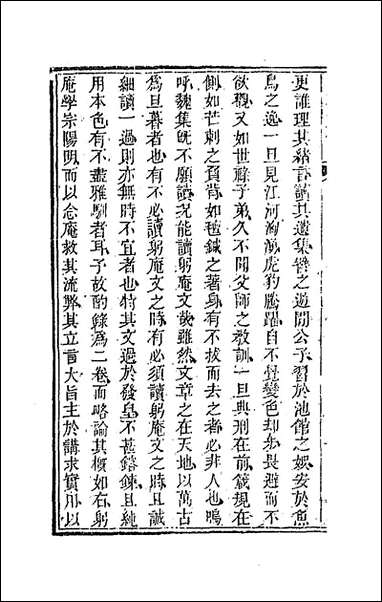 更誰理其緒言讀其遺集譬之遊閒公子習於池館之娛安於魚
鳥之逸一旦見江河洶湧虎豹騰躍自不覺變色却步長避而不
欲觀又如世祿子弟久不聞父師之敎訓一旦典刑在前箴規在
側如芒刺之負背如毡鍼之著身有不拔而去之者必非人也嗚
呼魏集旣不願讀況能讀躬庵文哉雖然文章之在天地以萬古
爲旦暮者也有不必讀躬庵文之時有必須讀躬庵文之時且誠
細讀一過則亦無時不宜者也特其文過於發皇不甚鎔鍊且純
用本色有不盡雅馴者耳予故酌錄爲二卷而略論其槪如右躬
庵學宗陽明而以念庵救其流弊其立言大旨主於講求實用以